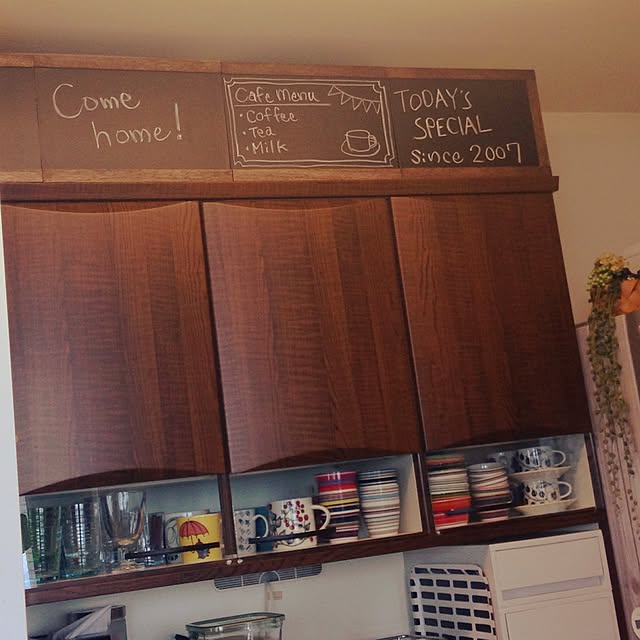 Come
home!
Cafe Menu
・Coffee
・Tea
・Milk
TODAY's
SPECIAL
since 2007